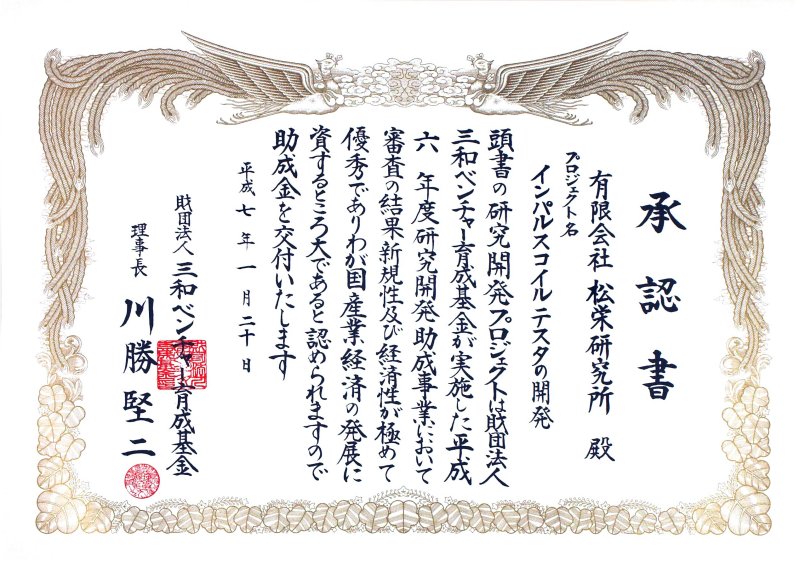 承認書
有限会社 松栄研究所 殿
プロジェクト名
インパルスコイルテスタの開発
頭書の研究開発プロジェクトは財団法人
三和ベンチャー育成基金が実施した平成
六 年度研究開発助成事業において
審査の結果新規性及び経済性が極めて
優秀でありわが国産業経済の発展に
資するところ大であると認められますので
助成金を交付いたします
平成 七 年 一 月 二十 日
財団法人 三和ベンチャー育成基金
理事長 川勝堅二